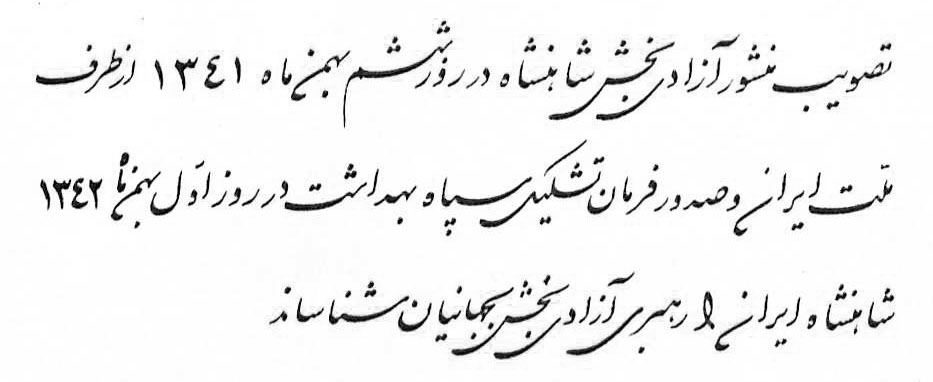 تصویب منشور آزادی بخش شاهنشاه در روز ششم بهمن ماه ۱۳٤۱ از طرف
ملت ایران و صدور فرمان تشکیل سپاه بهداشت در روز اول بهمن ماه ۱۳٤۲
شاهنشاه ایران را رهبری آزادی بخش بجهانیان شناساند